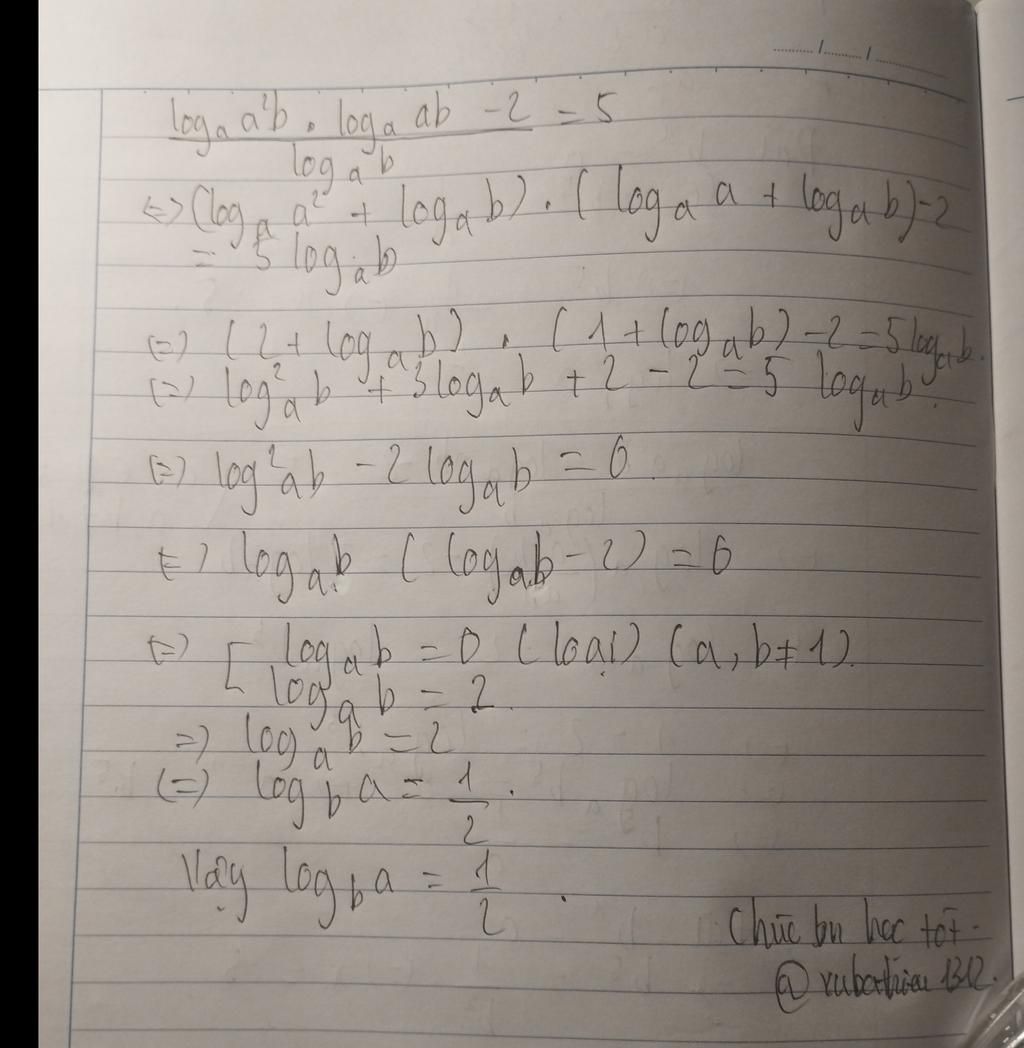 ...../...../.....
log_a a²b . log_a ab - 2 = 5
log_a b
<=> (log_a a² + log_a b) . (log_a a + log_a b) - 2
= 5 log_a b
<=> (2 + log_a b) . (1 + log_a b) - 2 = 5 log_a b.
<=> log²_a b + 3 log_a b + 2 - 2 = 5 log_a b.
<=> log²_a b - 2 log_a b = 0.
<=> log_a b (log_a b - 2) = 0
<=> [ log_a b = 0 (loại) (a, b ≠ 1).
log_a b = 2.
=> log_a b = 2
<=> log_b a = 1/2.
Vậy log_b a = 1/2.
Chúc bn học tốt.